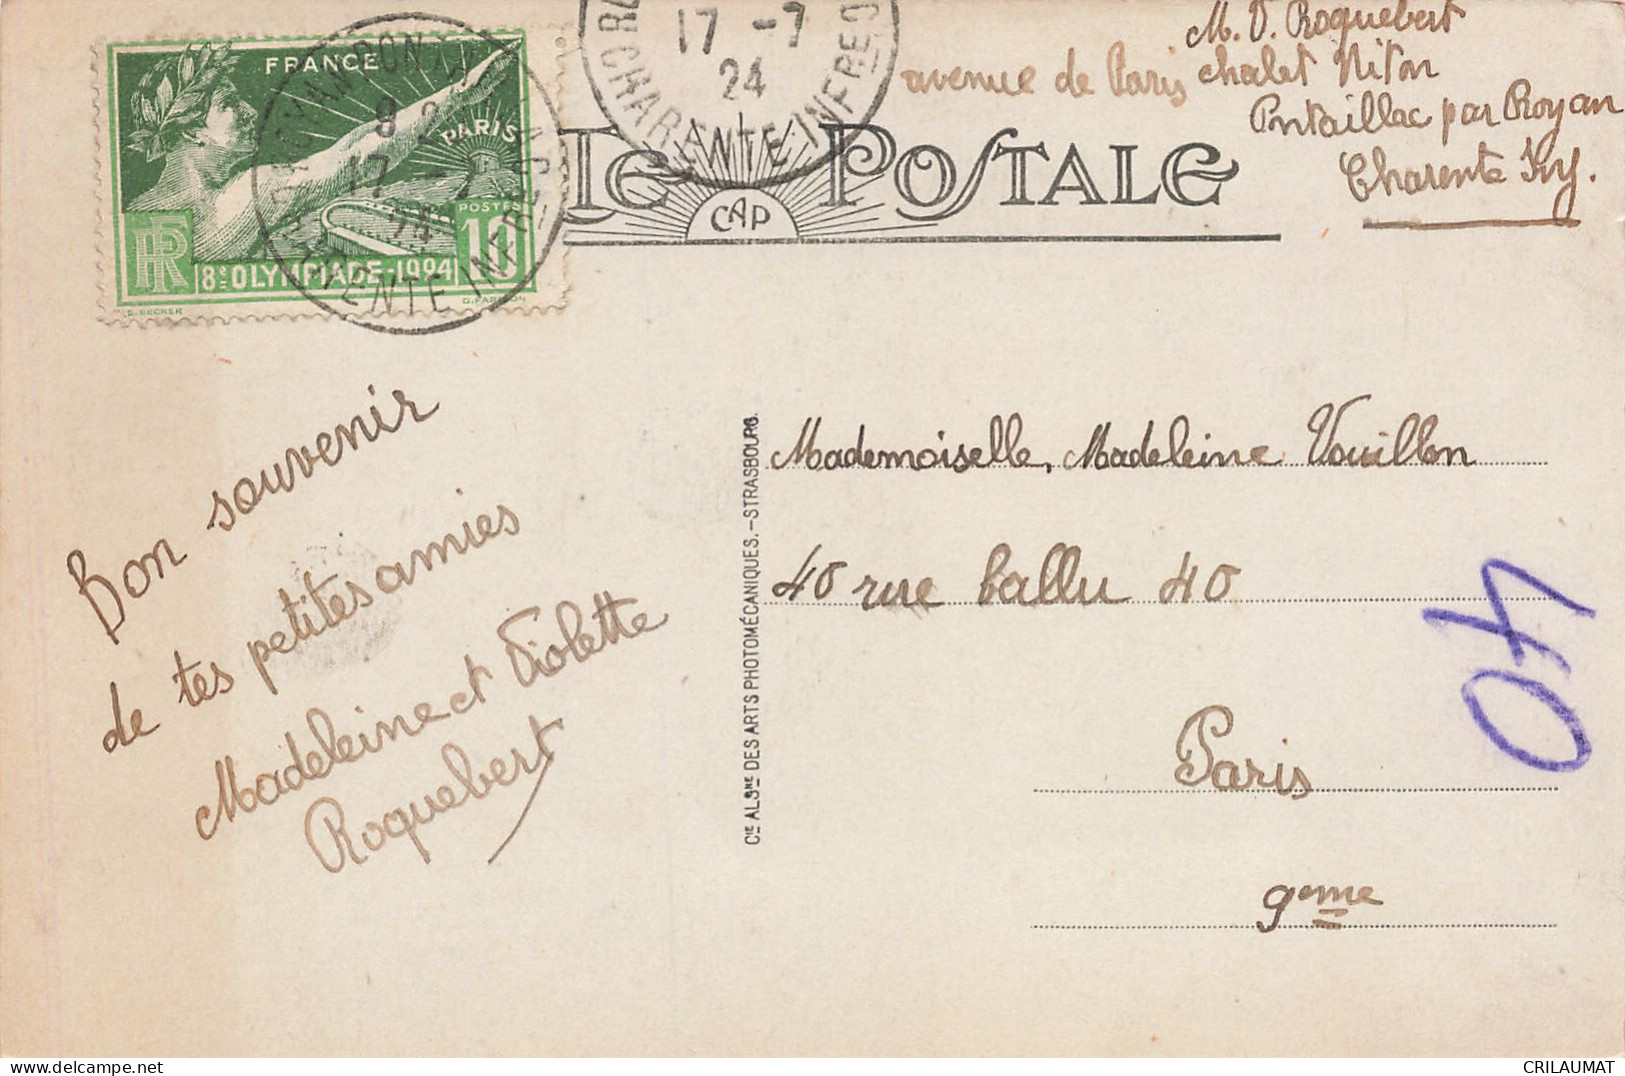 FRANCE
PARIS
POSTES
RF
8e OLYMPIADE-1924
10
S. BECKER
9
17 -7
24
CHARENTE INFRE
17 -7
24
CHARENTE INFRE
M. V. Roquebert
avenue de Paris chalet Niton
Pntaillac par Royan
Charente Ivy.
TE POSTALE
CAP
Bon souvenir
de tes petites amies
Madeleine et Violette
Roquebert
CIE ALSNE DES ARTS PHOTOMÉCANIQUES.-STRASBOURG.
Mademoiselle, Madeleine Vouillon
40 rue ballu 40
Paris
9eme
40
CRILAUMAT